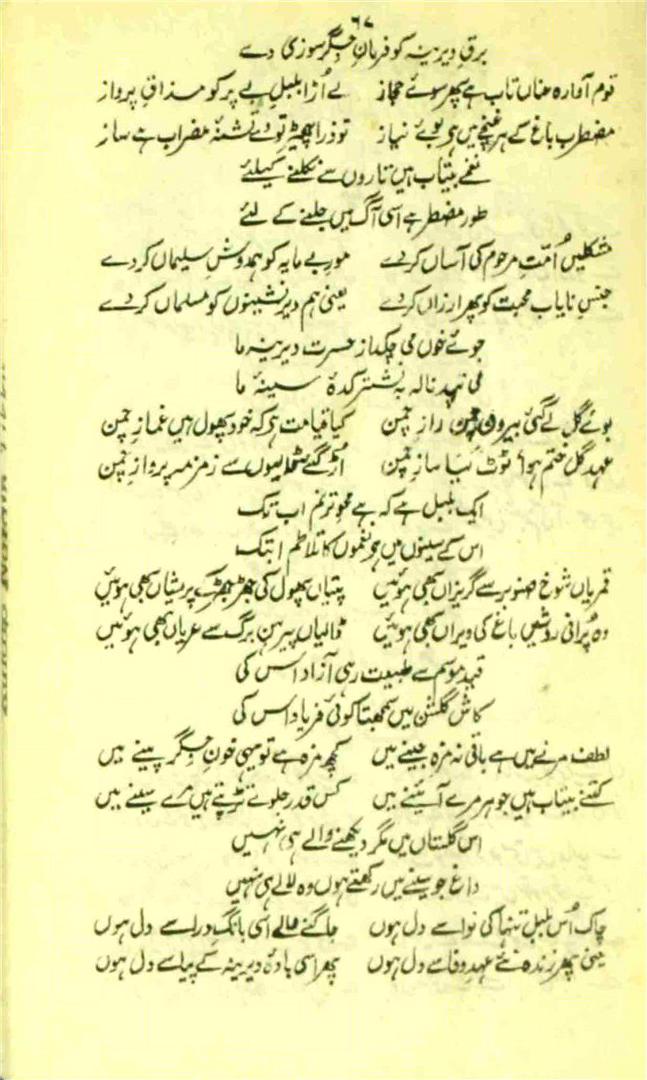 ۶۷
برقِ دیرینہ کو فرمانِ جگر سوزی دے
قوم آوارہ عناں تاب ہے پھر سوئے حجاز لے اُڑا بلبلِ بے پر کو مذاقِ پرواز
مضطرب باغ کے ہر غنچے میں ہے بوئے نیاز تو ذرا چھیڑ تو دے تشنۂ مضراب ہے ساز
نغمے بیتاب ہیں تاروں سے نکلنے کیلئے
طور مضطر ہے اسی آگ میں جلنے کے لئے
مشکلیں اُمّتِ مرحوم کی آساں کر دے مورِ بے مایہ کو ہمدوشِ سلیماں کر دے
جنسِ نایابِ محبت کو پھر ارزاں کر دے یعنی ہم دیر نشینوں کو مسلماں کر دے
جوئے خوں می چکد از حسرتِ دیرینۂ ما
می تپد نالہ بہ نشتر کدۂ سینۂ ما
بوئے گل لے گئی بیرونِ چمن رازِ چمن کیا قیامت ہے کہ خود پھول ہیں غمازِ چمن
عہدِ گل ختم ہوا ٹوٹ گیا سازِ چمن اڑ گئے ڈالیوں سے زمزمہ پردازِ چمن
ایک بلبل ہے کہ ہے محوِ ترنم اب تک
اس کے سینوں میں ہے نغموں کا تلاطم ابتک
قمریاں شاخِ صنوبر سے گریزاں بھی ہوئیں پتیاں پھول کی جھڑ جھڑ کے پریشاں بھی ہوئیں
وہ پُرانی روشیں باغ کی ویراں بھی ہوئیں ڈالیاں پیرہنِ برگ سے عریاں بھی ہوئیں
قیدِ موسم سے طبیعت رہی آزاد اس کی
کاش گلشن میں سمجھتا کوئی فریاد اس کی
لطف مرنے میں ہے باقی نہ مزہ جینے میں کچھ مزہ ہے تو یہی خونِ جگر پینے میں
کتنے بیتاب ہیں جوہر مرے آئینے میں کس قدر جلوے تڑپتے ہیں مرے سینے میں
اس گلستاں میں مگر دیکھنے والے ہی نہیں
داغ جو سینے میں رکھتے ہوں وہ لالے ہی نہیں
چاک اُس بلبلِ تنہا کی نوا سے دل ہوں جاگنے والے اسی بانگِ درا سے دل ہوں
یعنی پھر زندہ نئے عہدِ وفا سے دل ہوں پھر اسی بادۂ دیرینہ کے پیاسے دل ہوں